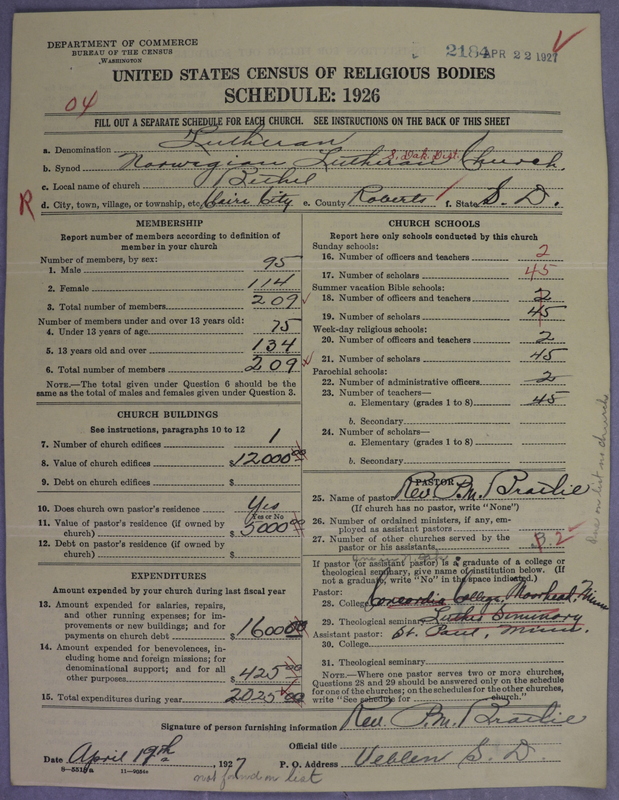 DEPARTMENT OF COMMERCE
BUREAU OF THE CENSUS
WASHINGTON
2184 APR 22 1927
UNITED STATES CENSUS OF RELIGIOUS BODIES
SCHEDULE: 1926
04
FILL OUT A SEPARATE SCHEDULE FOR EACH CHURCH. SEE INSTRUCTIONS ON THE BACK OF THIS SHEET
a. Denomination Lutheran
S. Dak. Dist.
b. Synod Norwegian Lutheran Church.
c. Local name of church Bethel
R
d. City, town, village, or township, etc. Claire City e. County Roberts f. State S. D.
MEMBERSHIP
Report number of members according to definition of
member in your church
Number of members, by sex:
1. Male 95
2. Female 114
3. Total number of members 209
Number of members under and over 13 years old:
4. Under 13 years of age 75
5. 13 years old and over 134
6. Total number of members 209
NOTE.—The total given under Question 6 should be the
same as the total of males and females given under Question 3.
CHURCH BUILDINGS
See instructions, paragraphs 10 to 12
7. Number of church edifices 1
8. Value of church edifices $12000 00
9. Debt on church edifices $
10. Does church own pastor's residence Yes
Yes or No
11. Value of pastor's residence (if owned by
church) $5000 00
12. Debt on pastor's residence (if owned by
church) $
EXPENDITURES
Amount expended by your church during last fiscal year
13. Amount expended for salaries, repairs,
and other running expenses; for im-
provements or new buildings; and for
payments on church debt $1600 00
14. Amount expended for benevolences, in-
cluding home and foreign missions; for
denominational support; and for all
other purposes $425 00
15. Total expenditures during year 2025 00
CHURCH SCHOOLS
Report here only schools conducted by this church
Sunday schools:
16. Number of officers and teachers 2
17. Number of scholars 45
Summer vacation Bible schools:
18. Number of officers and teachers 2
19. Number of scholars 45
Week-day religious schools:
20. Number of officers and teachers 2
21. Number of scholars 45
Parochial schools:
22. Number of administrative officers 2
23. Number of teachers—
a. Elementary (grades 1 to 8) 45
b. Secondary
24. Number of scholars—
a. Elementary (grades 1 to 8)
b. Secondary
PASTOR
25. Name of pastor Rev. P. M. Brattlie
(If church has no pastor, write "None")
26. Number of ordained ministers, if any, em-
ployed as assistant pastors
27. Number of other churches served by the
pastor or his assistants 2
If pastor (or assistant pastor) is a graduate of a college or
theological seminary, give name of institution below. (If
not a graduate, write "No" in the space indicated.)
Pastor:
28. College Concordia College, Moorhead, Minn
29. Theological seminary Luther Seminary
Assistant pastor: St. Paul, Minn.
30. College
31. Theological seminary
NOTE.—Where one pastor serves two or more churches,
Questions 28 and 29 should be answered only on the schedule
for one of the churches; on the schedules for the other churches,
write "See schedule for church."
Signature of person furnishing information Rev. P. M. Brattlie
Official title
Date April 19th, 1927 P. O. Address Veblen S. D.
8—551
not found on list